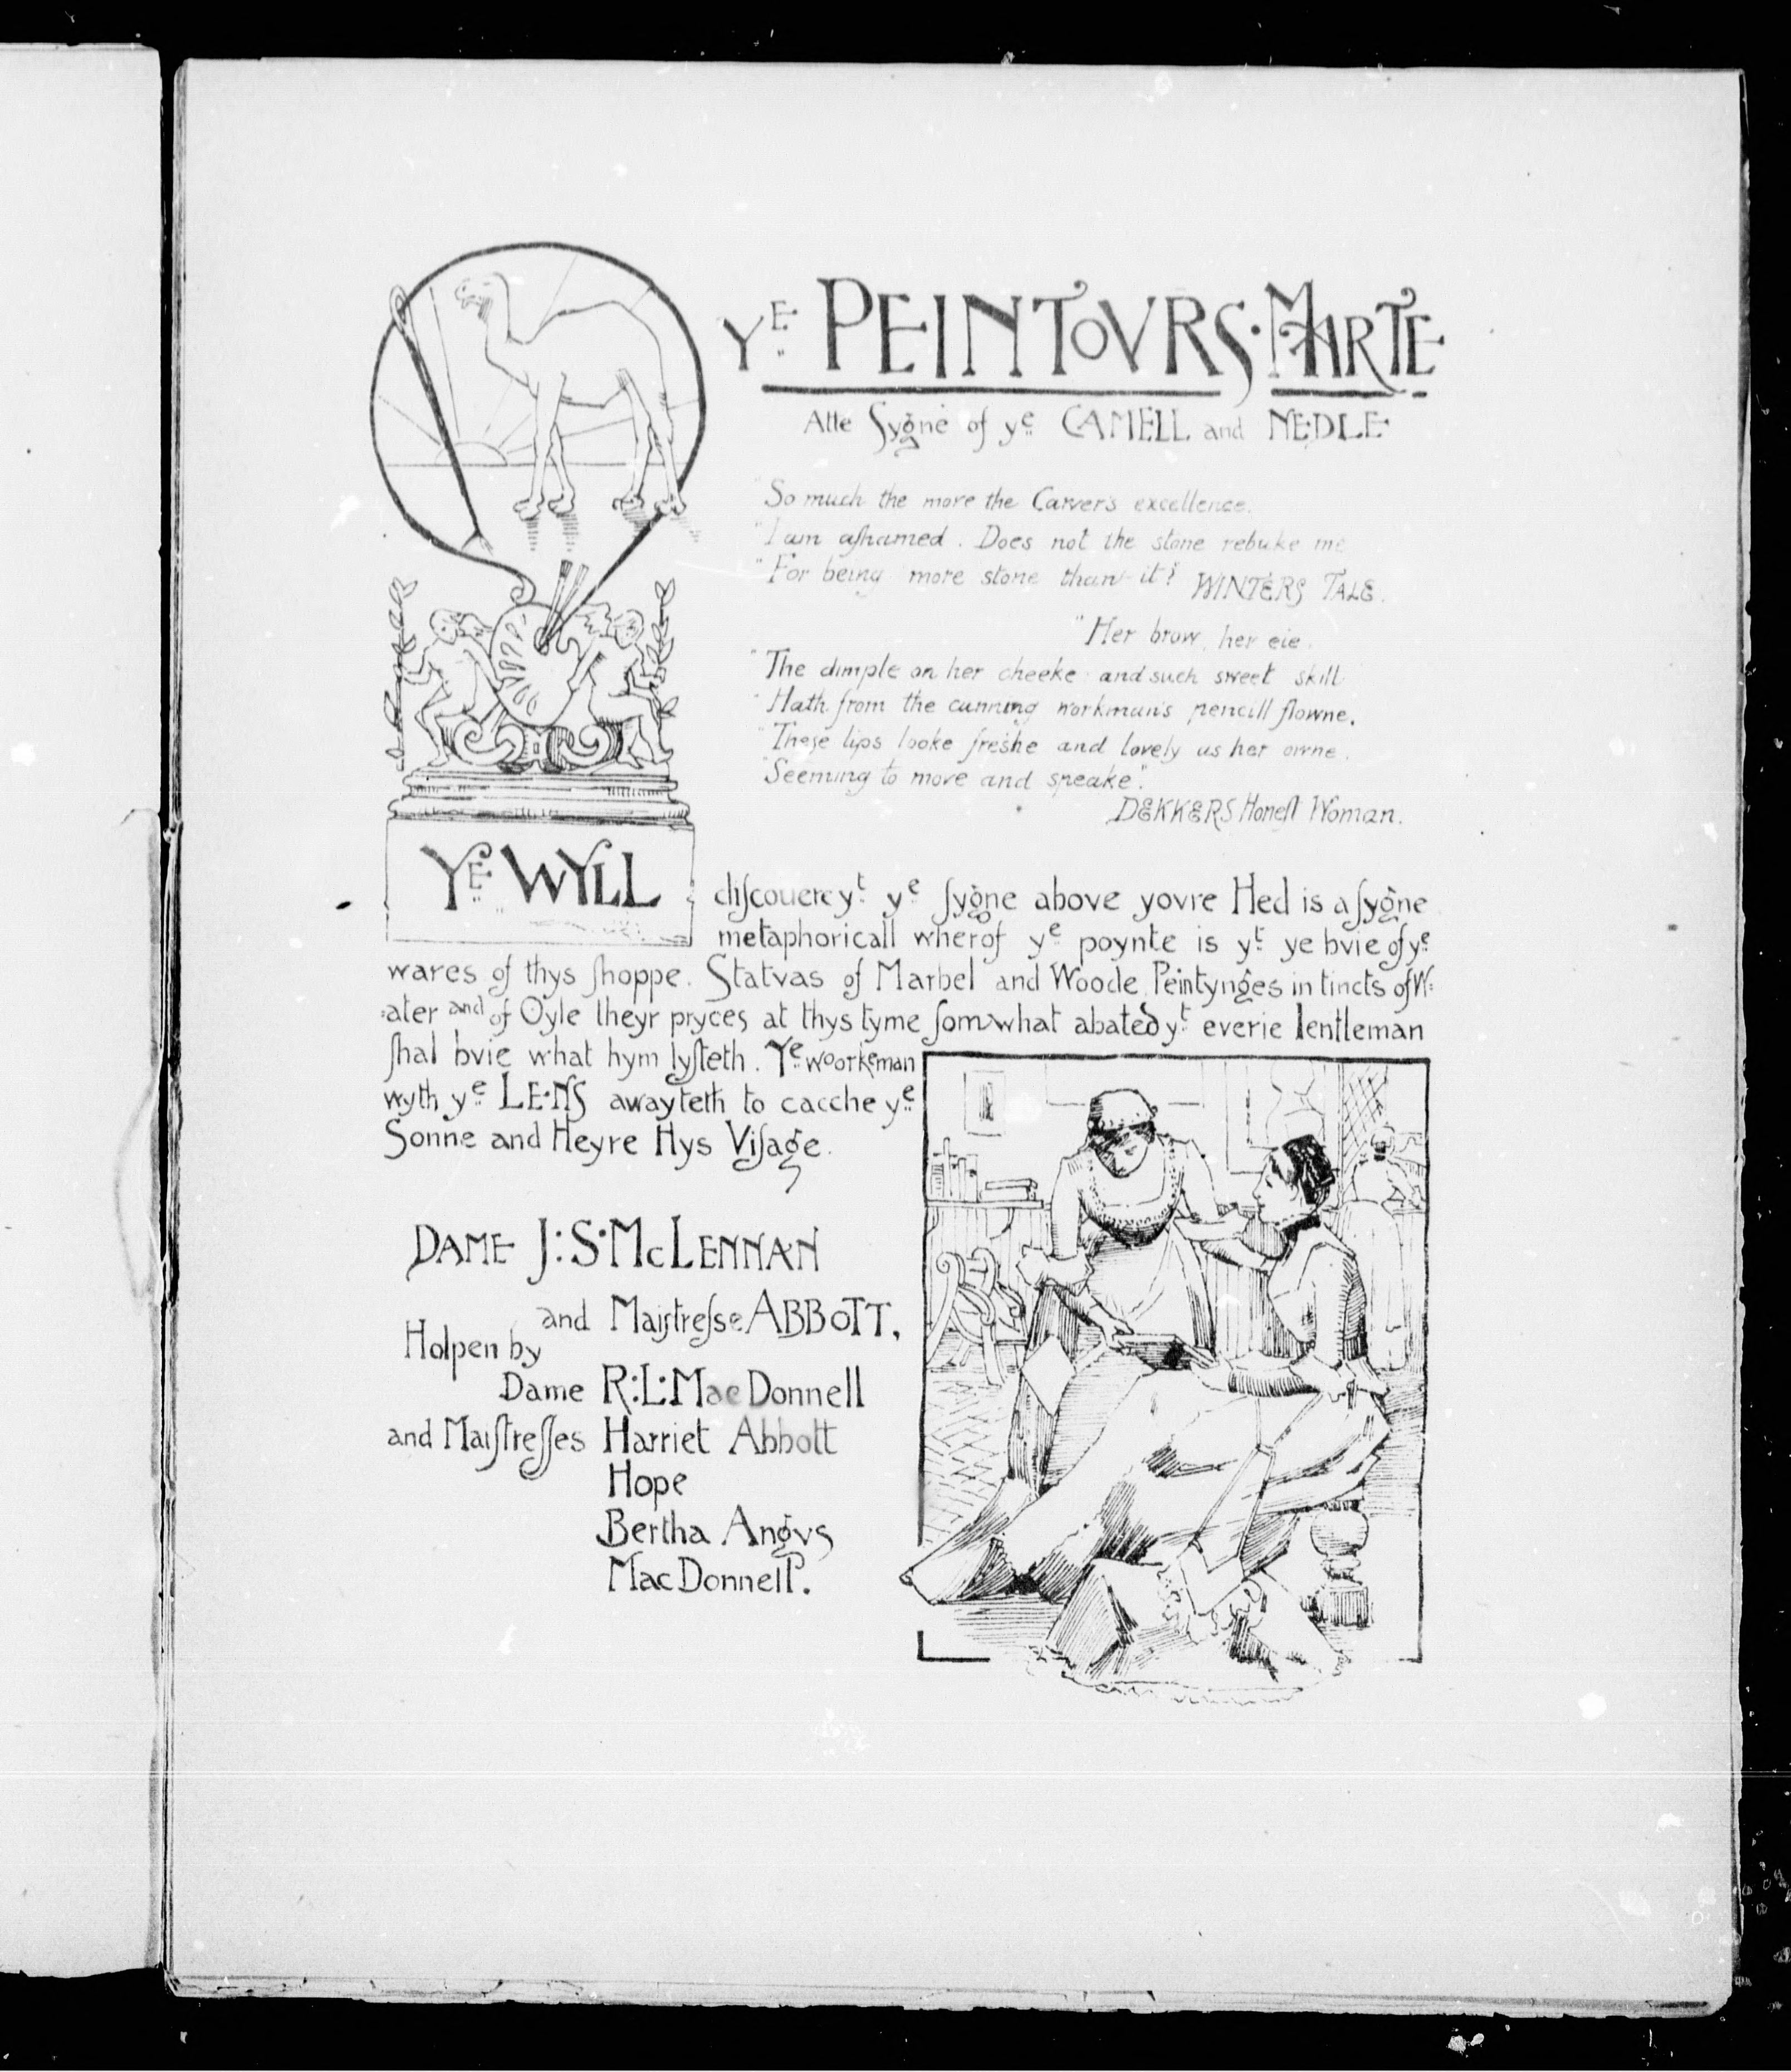 Yᴱ PEINTOVRS·MARTE
Atte Sygne of yᵉ CAMELL and NEDLE
"So much the more the Carver's excellence.
"I am aſhamed. Does not the stone rebuke me
"For being more stone than it? WINTERS TALE.
"Her brow, her eie.
"The dimple on her cheeke: and such sweet skill
"Hath from the cunning workman's pencill flowne.
"These lips looke freshe and lovely as her owne.
"Seeming to move and speake".
DEKKERS Honeſt Woman.
Yᴱ WYLL diſcouere yᵗ yᵉ ſygne above yovre Hed is a ſygne
metaphoricall wherof yᵉ poynte is yᵗ ye bvie of yᵉ
wares of thys ſhoppe. Statvas of Marbel and Woode, Peintynges in tincts of W:
:ater and of Oyle theyr pryces at thys tyme ſomwhat abated yᵗ everie Ientleman
ſhal bvie what hym lyſteth. Yᵉ woorkeman
wyth yᵉ LENS awayteth to cacche yᵉ
Sonne and Heyre Hys Viſage.
DAME J:S·McLENNAN
and Maiſtreſse ABBOTT,
Holpen by
Dame R:L:MacDonnell
and Maiſtreſſes Harriet Abbott
Hope
Bertha Angvs
MacDonnell.